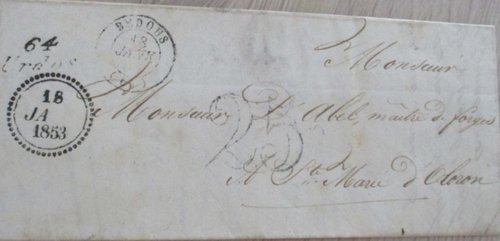 64
Urdos
BEDOUS
18
JANV.
18
JA
1853
25
Monsieur
Monsieur d'Abel, maître de forges
A Ste Marie d'Oloron